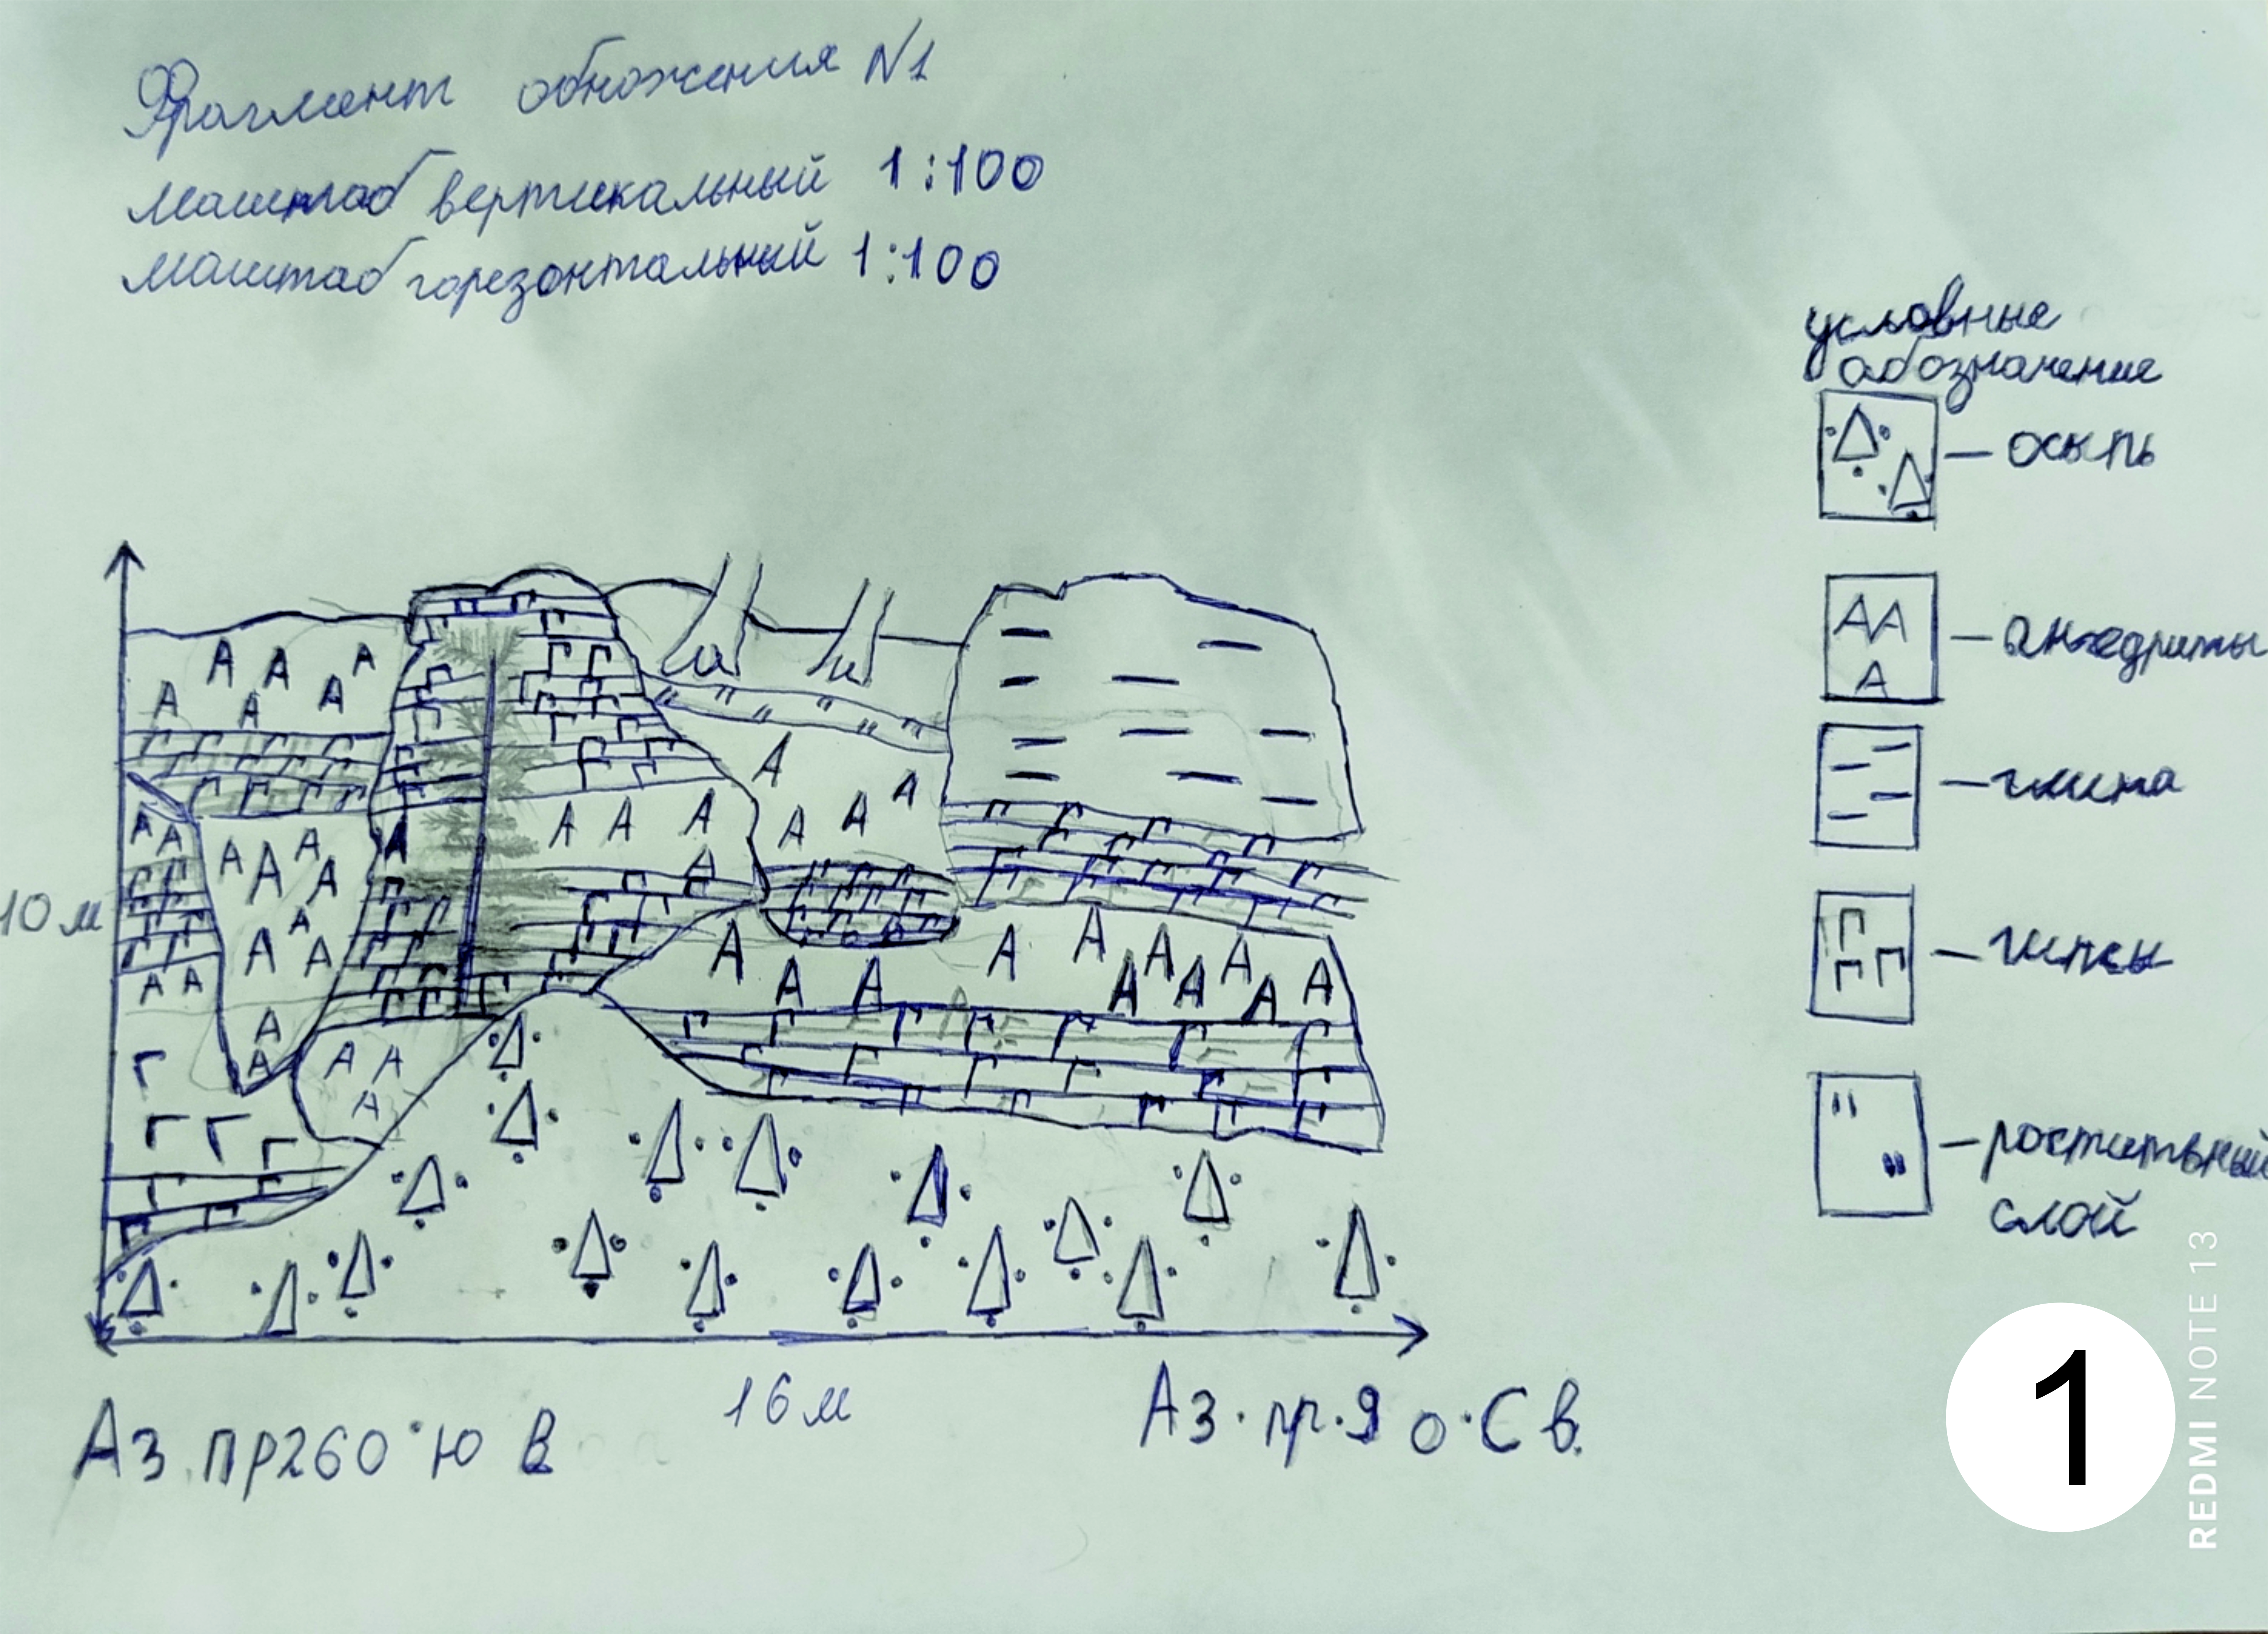 Фрагмент обножения N1
Масштаб вертикальный 1:100
Масштаб горезонтальный 1:100
условные
обозначение
— осыпь
АА
А
— ангедриты
— глина
— гипсы
— ростительный
слой
10 м
16 м
Аз пр260° ю в
Аз. пр. 9 о. С в.
1
REDMI NOTE 13